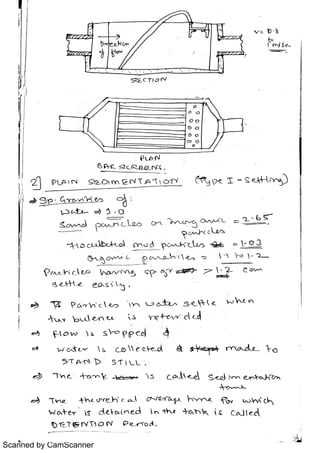 V = 0.8
to
1 m/sec.
Direction
of flow
SECTION
PLAN
BAR SCREEN.
2] PLAIN SEDIMENTATION (Type I - Settling)
⇒ Sp. Gravities of:
Water ⇒ 1.0
Sand particles or inorganic = 2.65
particles
flocculated mud particles = 1.03
Organic particles = 1.1 to 1.2
Particles having sp gr > 1.2 can
settle easily.
⇒ Particles in water settle when
turbulence is retarded
⇒ Flow is stopped
⇒ Water is collected & made to
STAND STILL.
⇒ The tank is called Sedimentation
tank.
⇒ The theoretical average time for which
Water is detained in the tank is called
DETENTION Period.
Scanned by CamScanner